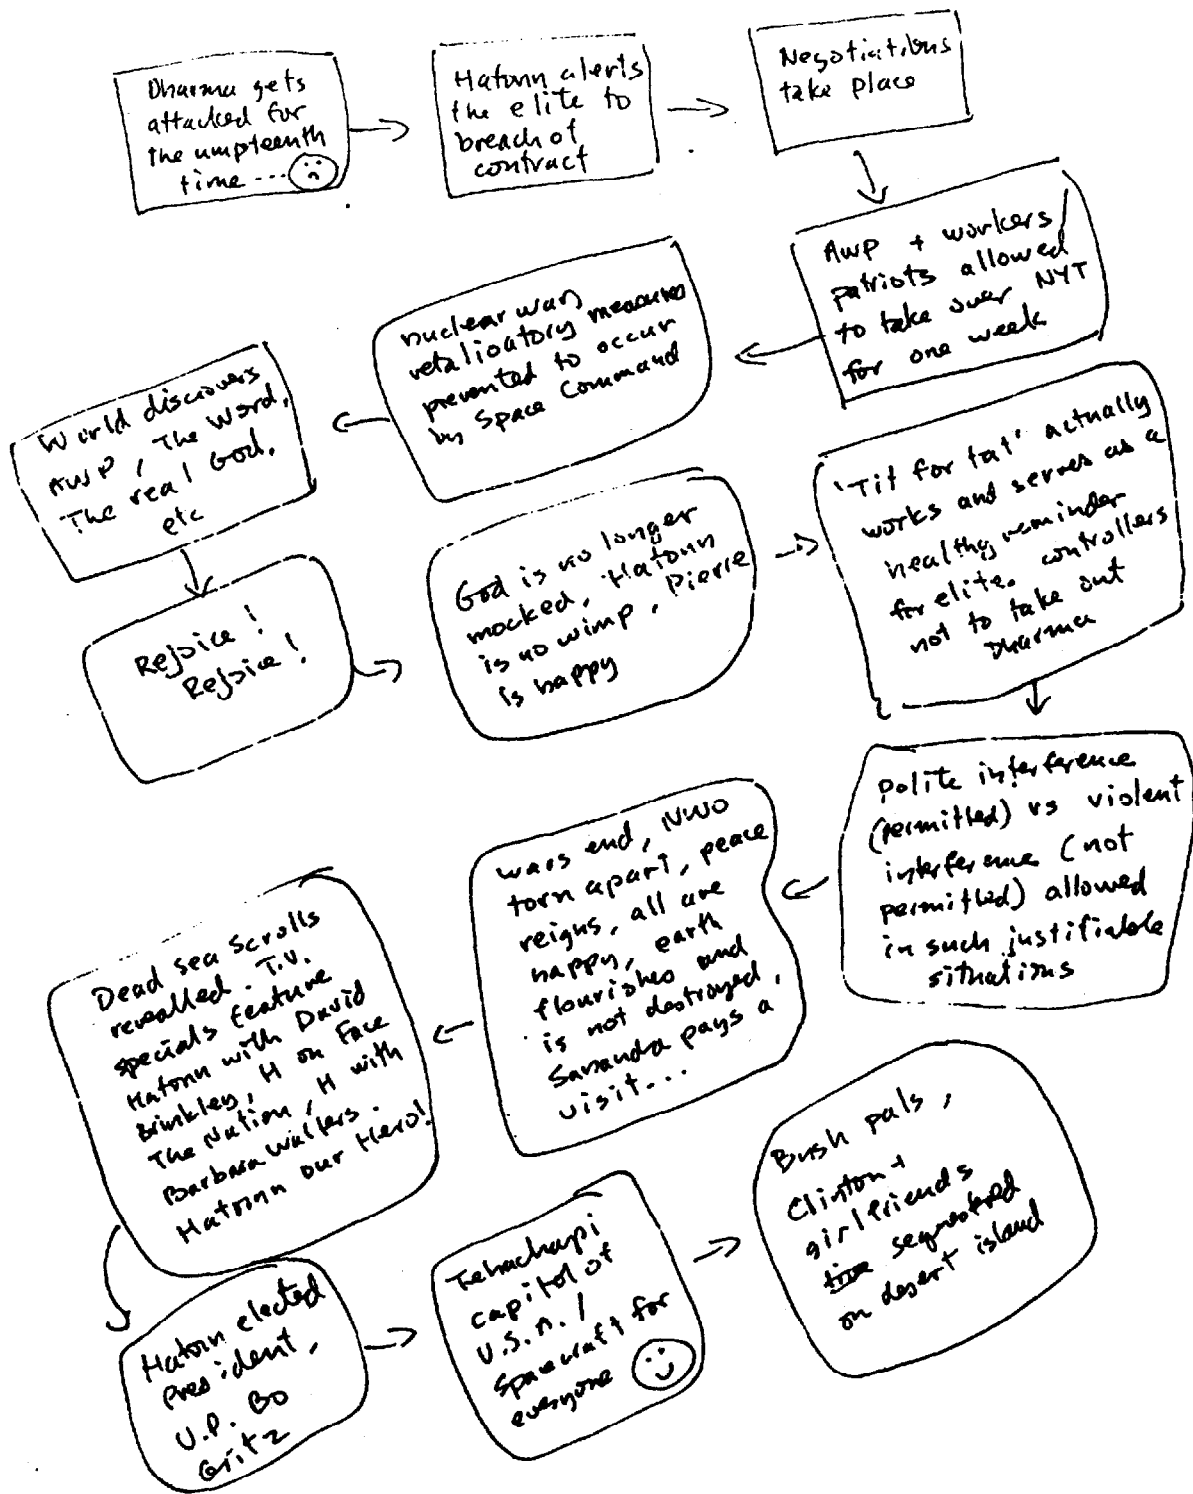 Dharma gets
attacked for
the umpteenth
time...
Hatonn alerts
the elite to
breach of
contract
Negotiations
take place
AWP + workers/
patriots allowed
to take over NYT
for one week
nuclear war,
retalioatory measures
prevented to occur
by Space Command
World discovers
AWP, The Word,
The real God,
etc
Rejoice!
Rejoice!
God is no longer
mocked, Hatonn
is no wimp, Pierre
is happy
'Tit for tat' actually
works and serves as a
healthy reminder
for elite controllers
not to take out
Dharma
Polite interference
(permitted) vs violent
interference (not
permitted) allowed
in such justifiable
situations
wars end, NWO
torn apart, peace
reigns, all are
happy, earth
flourishes and
is not destroyed,
Sananda pays a
visit...
Dead sea scrolls
revealled. T.V.
specials feature
Hatonn with David
Brinkley, H on Face
The Nation, H with
Barbara Walters.
Hatonn our Hero!
Hatonn elected
President,
V.P. Bo
Gritz
Tehachapi
capitol of
U.S.A./
spacecraft for
everyone
Bush pals,
Clinton +
girlfriends
sequestered
on desert island